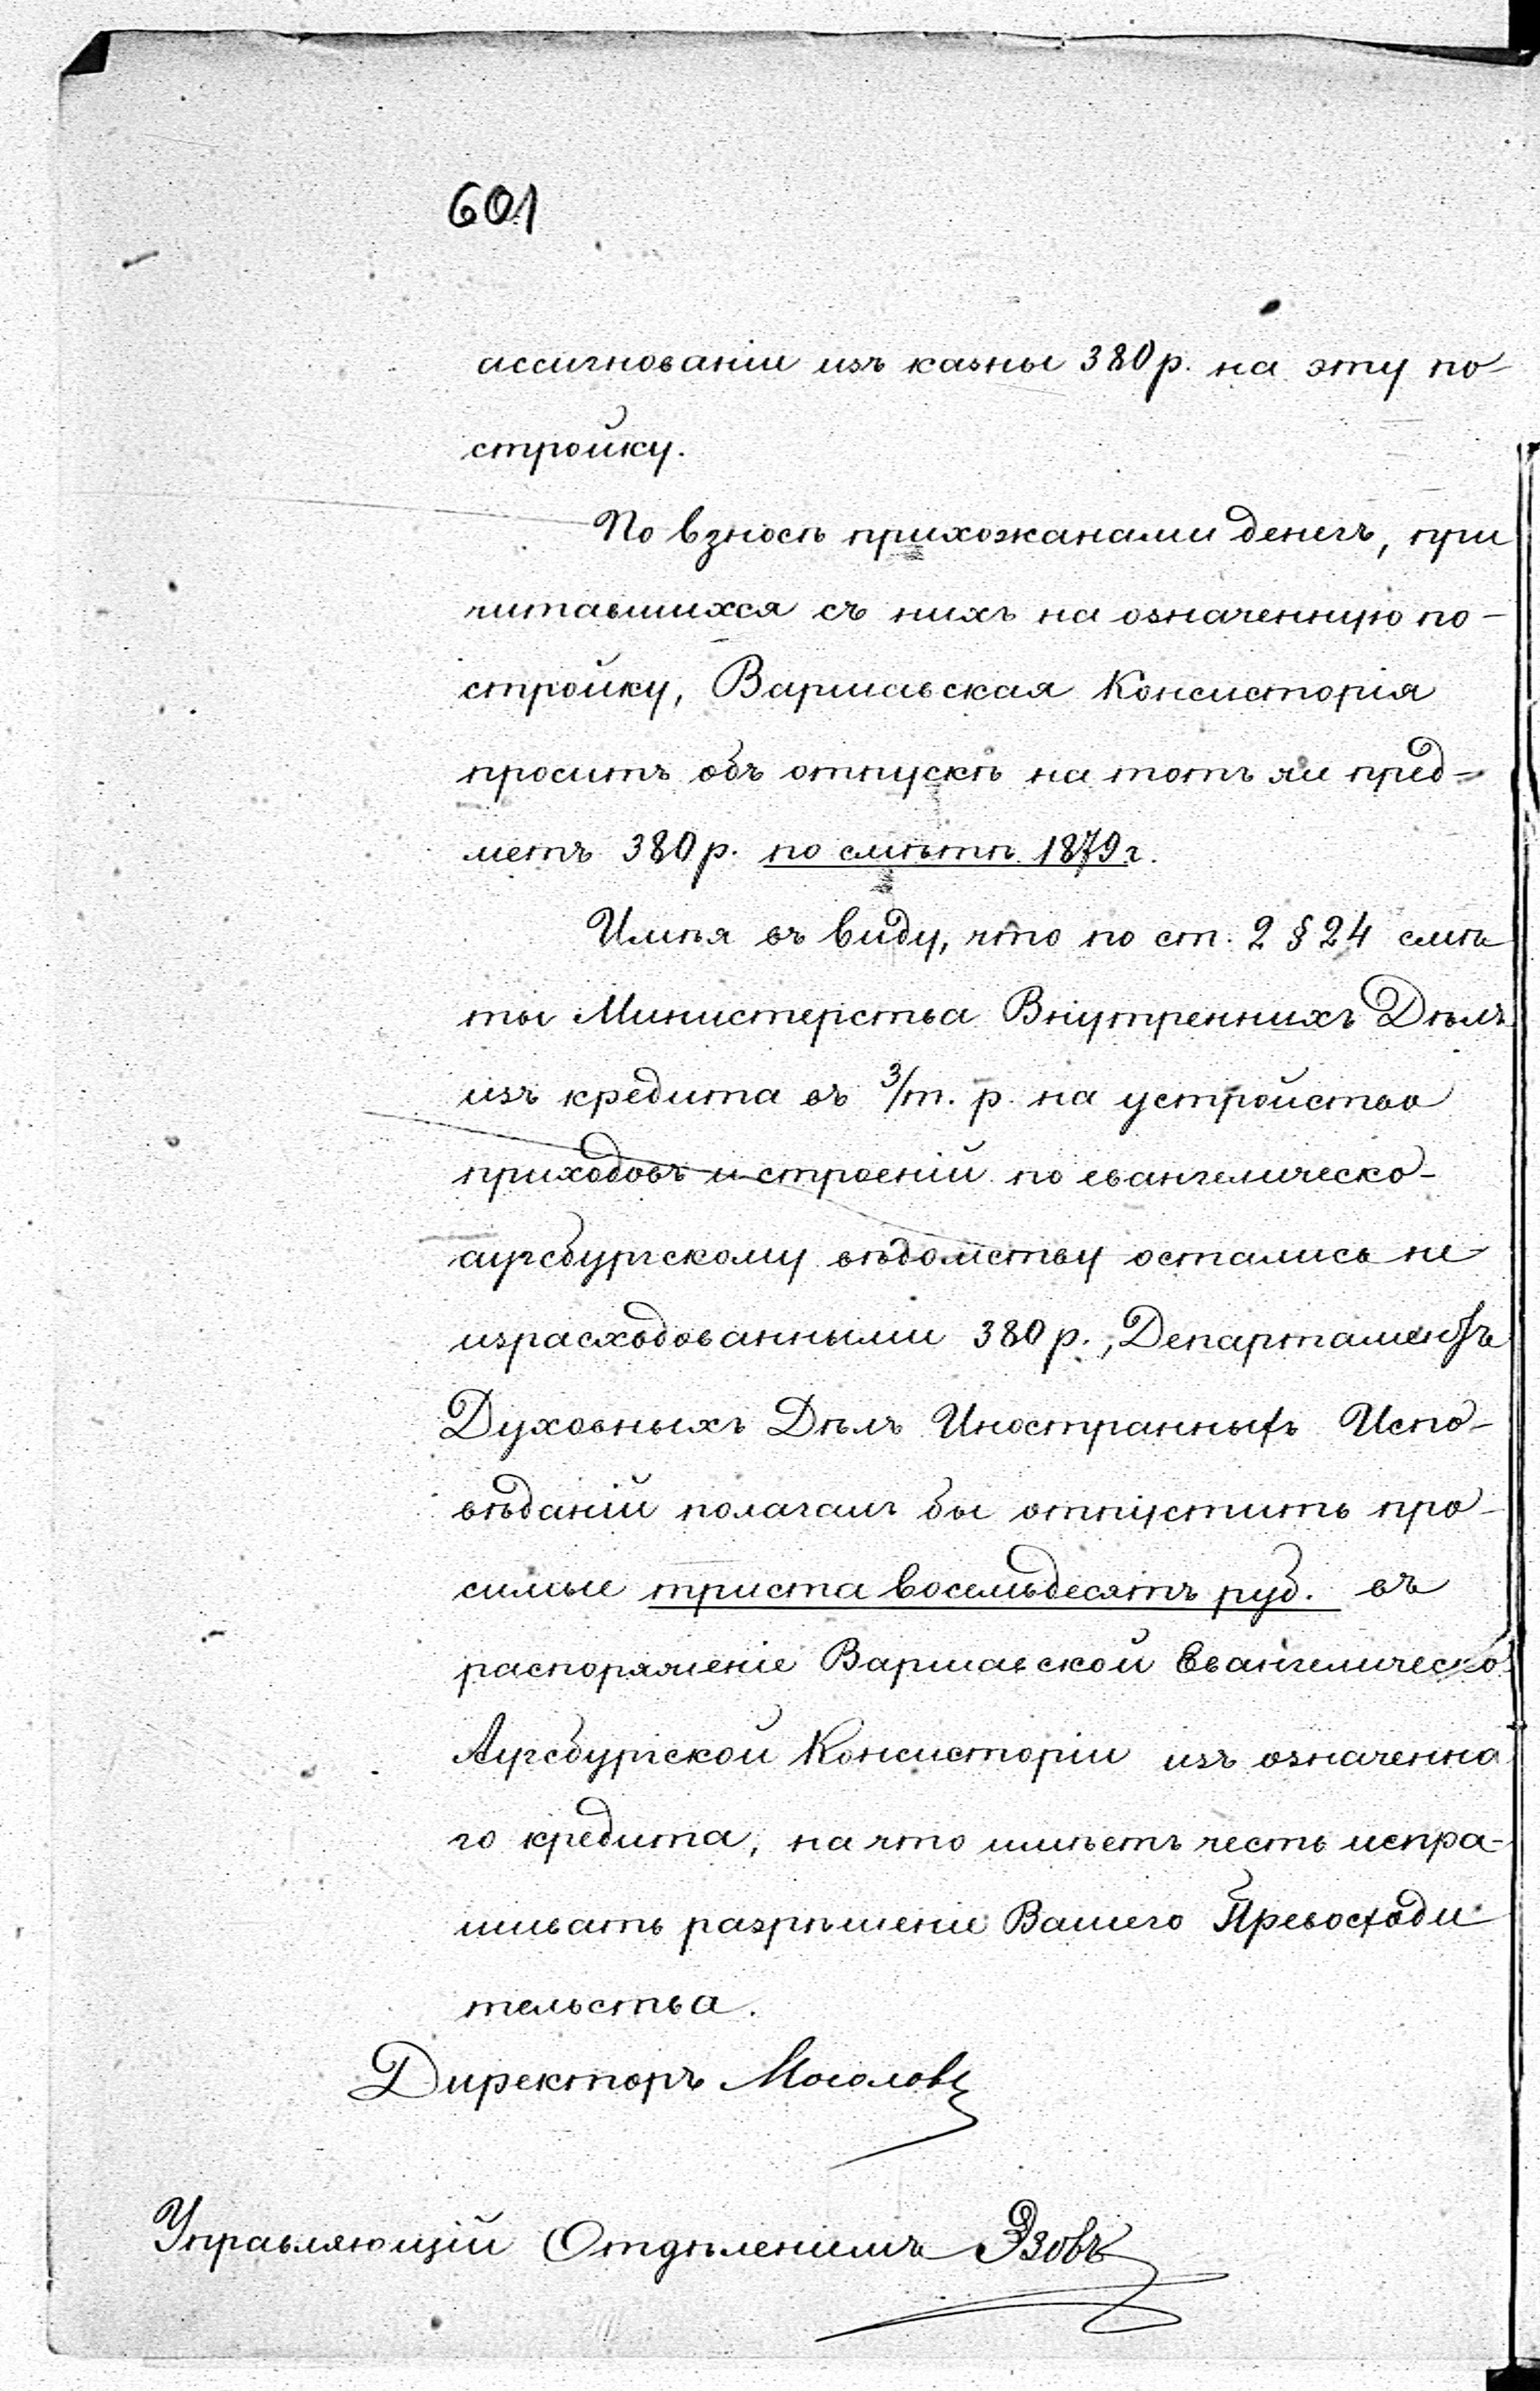 601
ассигнованіи изъ казны 380 р. на эту по-
стройку.
По взносѣ прихожанами денегъ, при
читавшихся съ нихъ на означенную по-
стройку, Варшавская Консисторія
проситъ объ отпускѣ на тотъ же пред-
метъ 380 р. по смѣтѣ 1879 г.
Имѣя въ виду, что по ст. 2 § 24 смѣ
ты Министерства Внутреннихъ Дѣлъ
изъ кредита въ 3/т. р. на устройство
приходовъ и строеній по евангелическо-
аугсбургскому вѣдомству остались не
израсходованными 380 р., Департаментъ
Духовныхъ Дѣлъ Иностранныхъ Испо-
вѣданій полагалъ бы отпустить про-
симые триста восемьдесятъ руб. въ
распоряженіе Варшавской Евангелическо
Аугсбургской Консисторіи изъ означенна
го кредита, на что имѣетъ честь испра-
шивать разрѣшеніе Вашего Превосходи
тельства.
Директоръ Мосоловъ
Управляющій Отдѣленіемъ Эзовъ